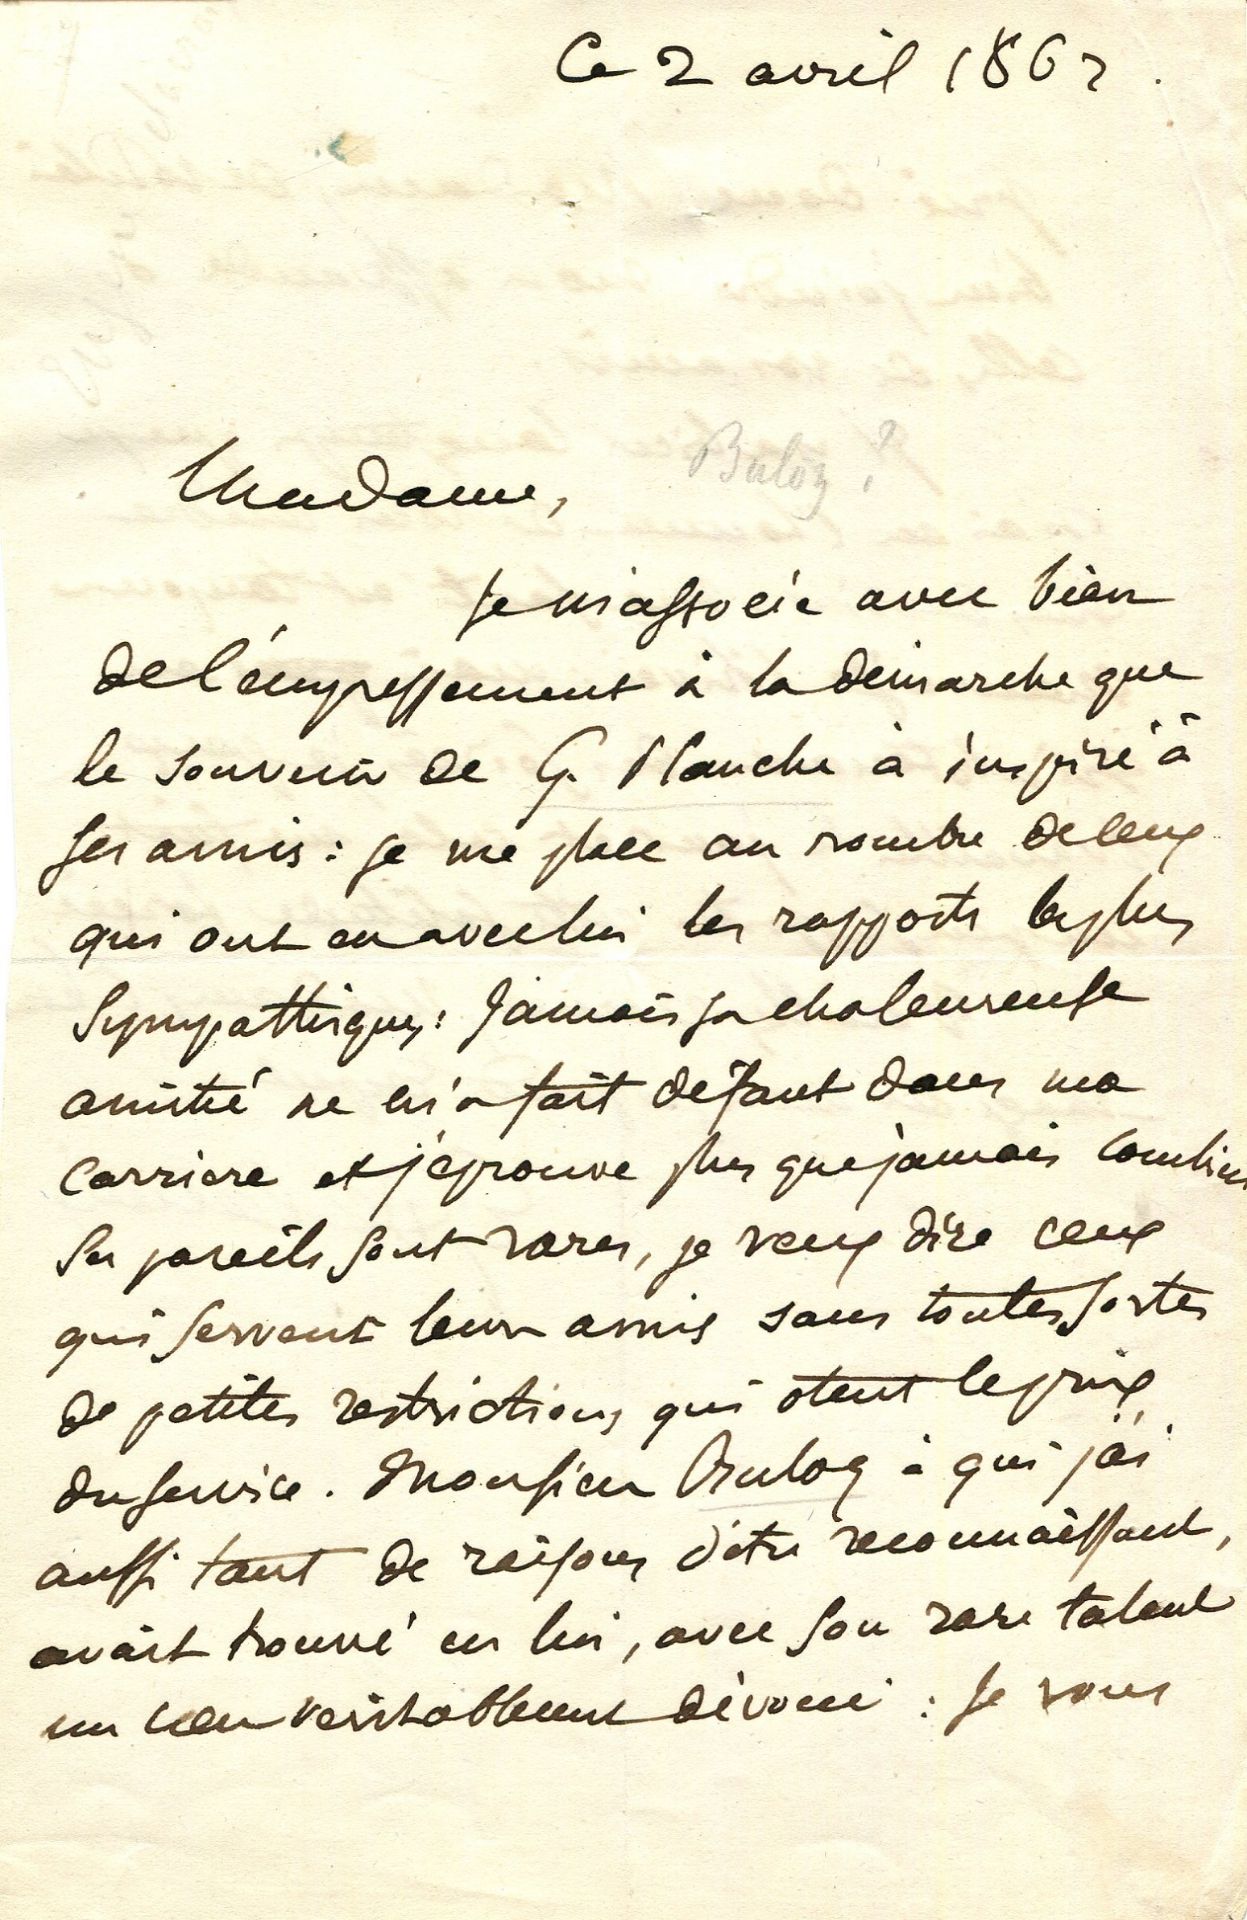 Ce 2 avril 1862.
Buloz ?
Madame,
Je m'associe avec bien
de l'empressement à la démarche que
le souvenir de G. Planche a inspiré à
ses amis : je me place au nombre de ceux
qui ont eu avec lui les rapports les plus
sympathiques : Jamais sa chaleureuse
amitié ne m'a fait défaut dans ma
carriere et j'éprouve plus que jamais combien
ses pareils sont rares, je veux dire ceux
qui servent leurs amis sans toutes sortes
de petites restrictions qui otent le prix
du service. Monsieur Buloz à qui j'ai
aussi tant de raisons d'être reconnaissant,
avait trouvé en lui, avec son rare talent
un cœur veritablement dévoué : Je vous